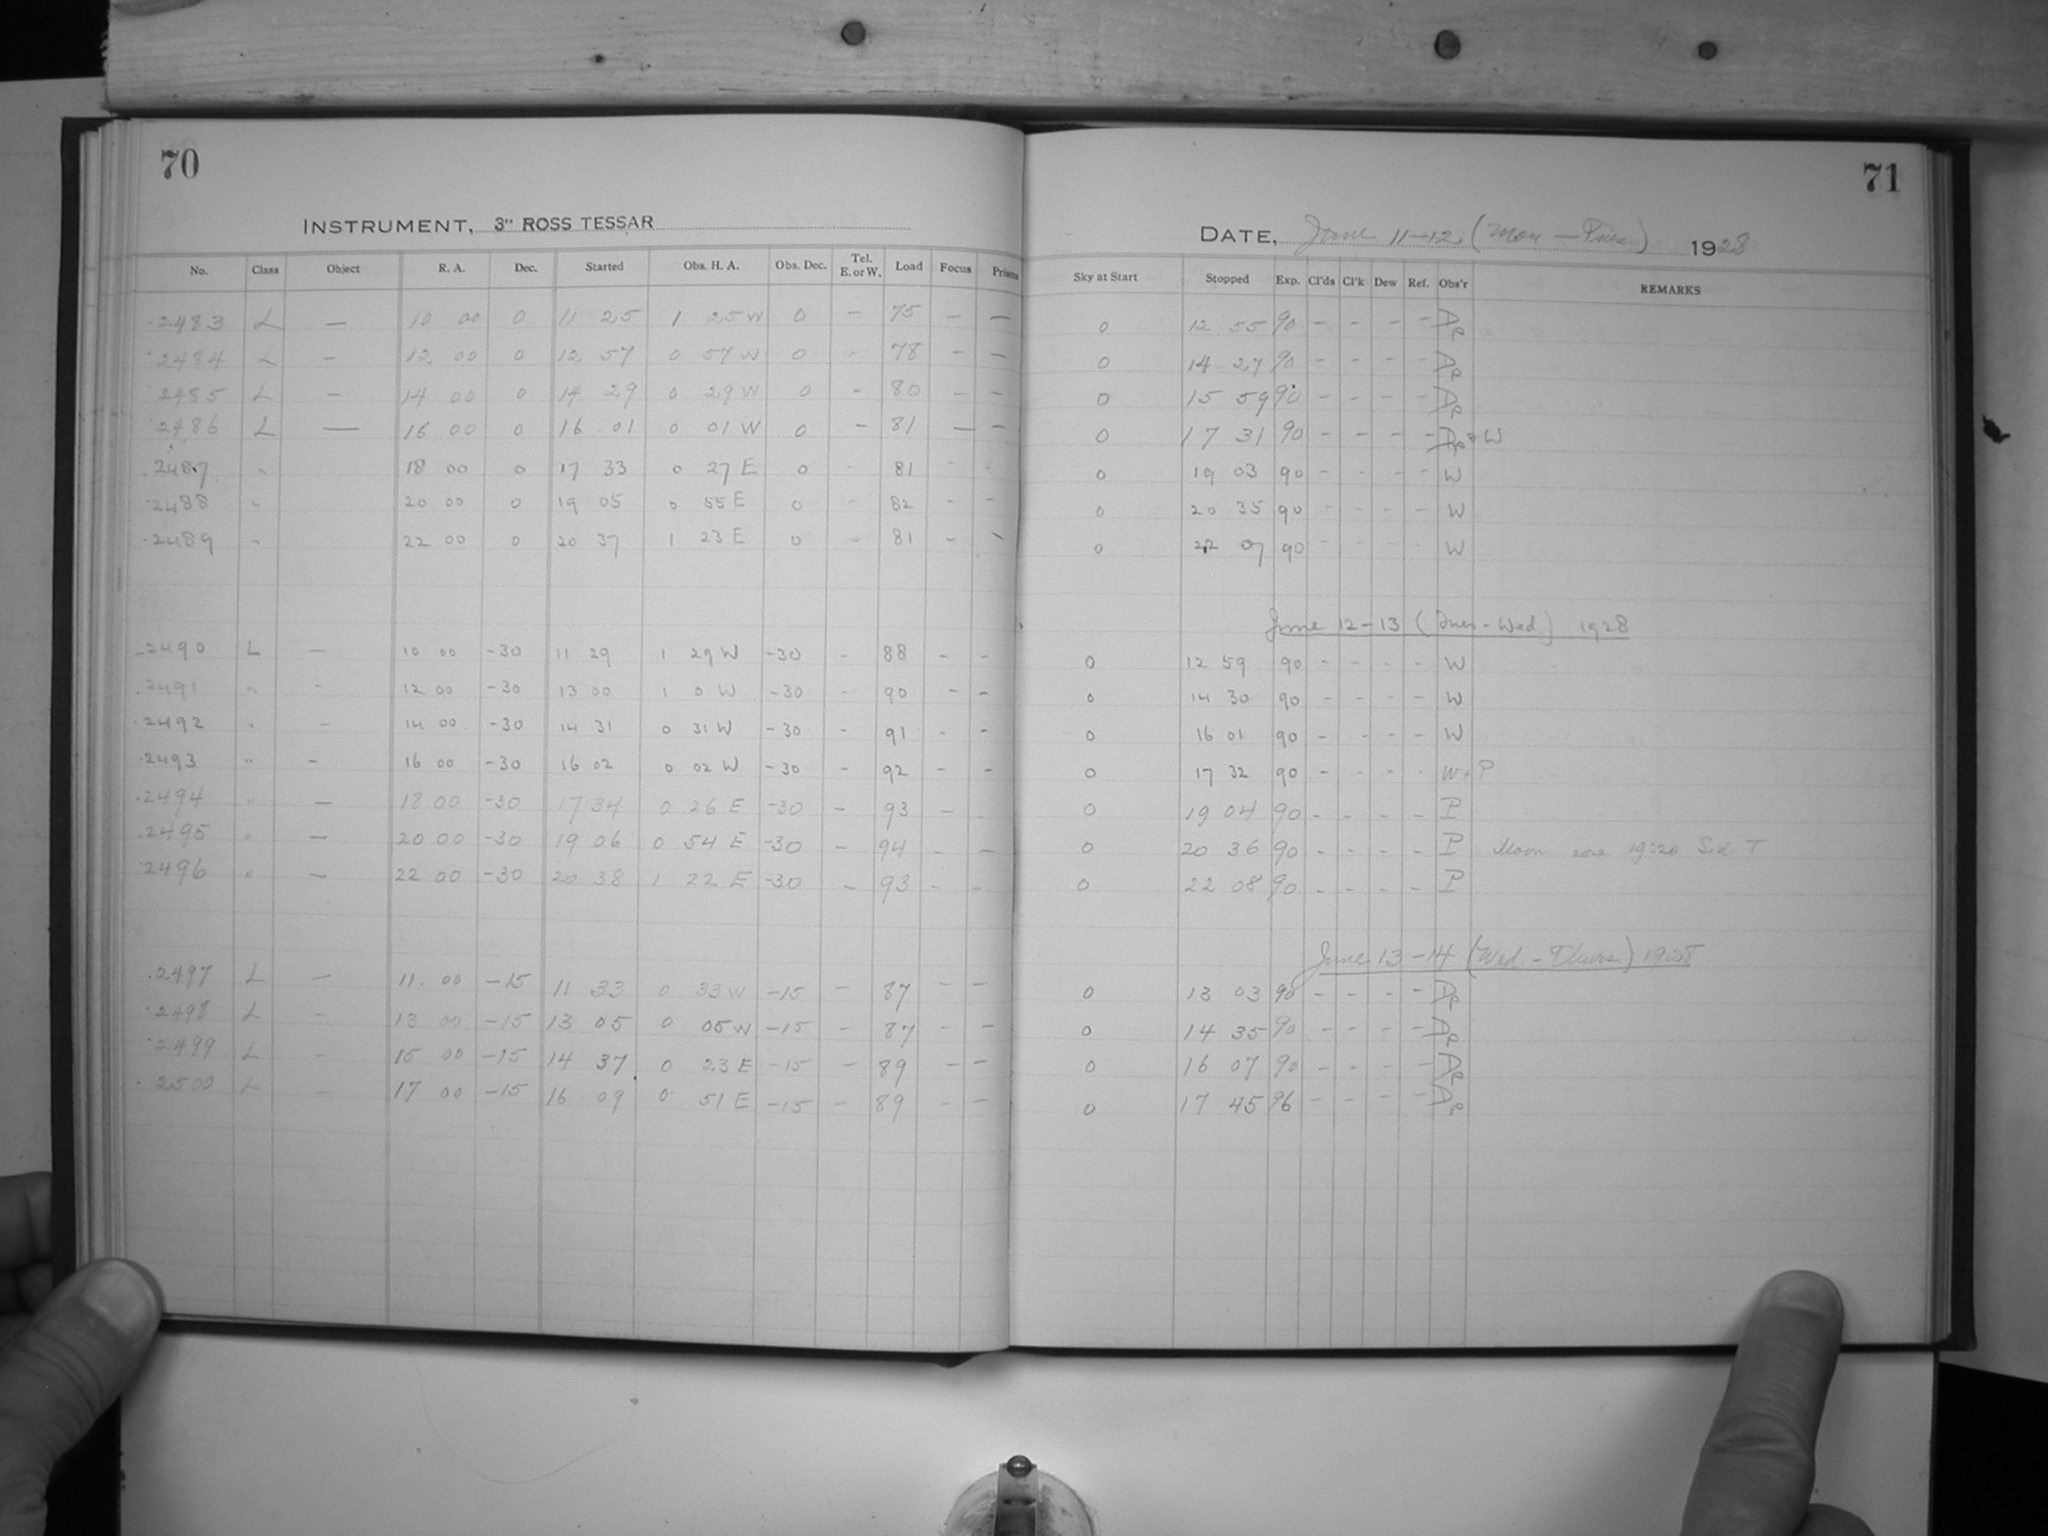 70
INSTRUMENT, 3" ROSS TESSAR
No. Class Object R. A. Dec. Started Obs. H. A. Obs. Dec. Tel. E. or W. Load Focus Prisms
2483 L — 10 00 0 11 25 1 25 W 0 - 75 - -
2484 L - 12 00 0 12 57 0 57 W 0 - 78 - -
2485 L - 14 00 0 14 29 0 29 W 0 - 80 - -
2486 L — 16 00 0 16 01 0 01 W 0 - 81 - -
2487 " 18 00 0 17 33 0 27 E 0 - 81 - -
2488 " 20 00 0 19 05 0 55 E 0 - 82 - -
2489 " 22 00 0 20 37 1 23 E 0 - 81 - -
2490 L - 10 00 -30 11 29 1 29 W -30 - 88 - -
2491 " - 12 00 -30 13 00 1 0 W -30 - 90 - -
2492 " - 14 00 -30 14 31 0 31 W -30 - 91 - -
2493 " - 16 00 -30 16 02 0 02 W -30 - 92 - -
2494 " - 18 00 -30 17 34 0 26 E -30 - 93 - -
2495 " - 20 00 -30 19 06 0 54 E -30 - 94 - -
2496 " - 22 00 -30 20 38 1 22 E -30 - 93 - -
2497 L - 11 00 -15 11 33 0 33 W -15 - 87 - -
2498 L - 13 00 -15 13 05 0 05 W -15 - 87 - -
2499 L - 15 00 -15 14 37 0 23 E -15 - 89 - -
2500 L - 17 00 -15 16 09 0 51 E -15 - 89 - -
71
DATE, June 11-12 (Mon - Tues.) 1928
Sky at Start Stopped Exp. Cl'ds Cl'k Dew Ref. Obs'r REMARKS
0 12 55 90 - - - -
0 14 27 90 - - - -
0 15 59 90 - - - -
0 17 31 90 - - - - + W
0 19 03 90 - - - - W
0 20 35 90 - - - - W
0 22 07 90 - - - - W
June 12-13 (Tues - Wed) 1928
0 12 59 90 - - - - W
0 14 30 90 - - - - W
0 16 01 90 - - - - W
0 17 32 90 - - - - W + P
0 19 04 90 - - - - P
0 20 36 90 - - - - P Moon rose 19:20 Sid T
0 22 08 90 - - - - P
June 13-14 (Wed. - Thurs.) 1928
0 13 03 90 - - - -
0 14 35 90 - - - -
0 16 07 90 - - - -
0 17 45 96 - - - -